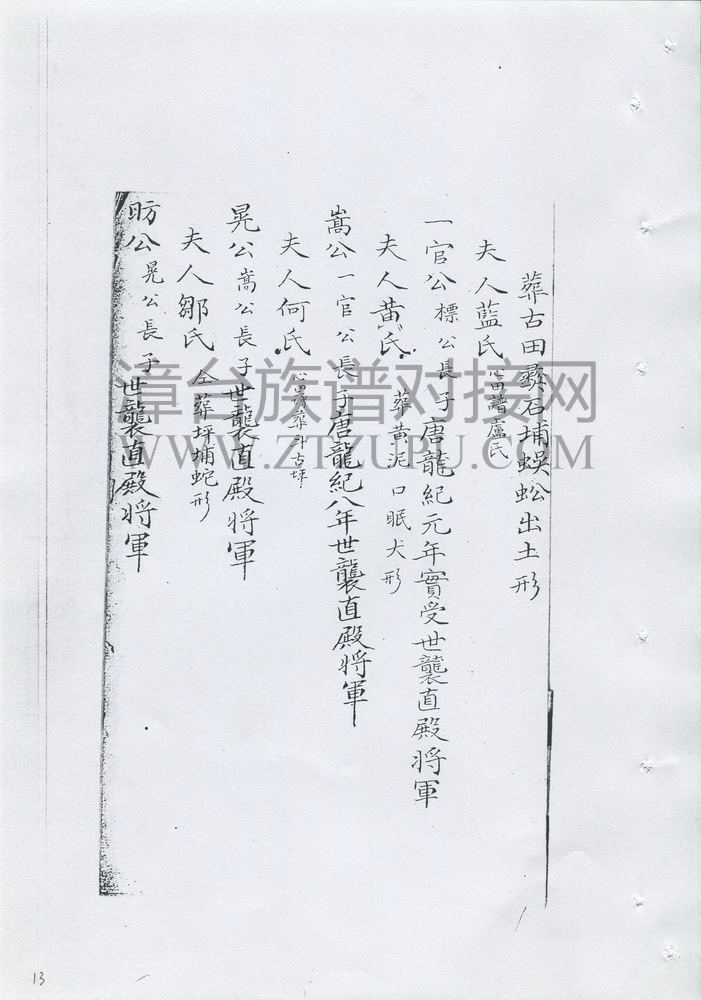 葬古田彝石埔蜈蚣出土形
夫人藍氏 心田譜盧氏
一官公 標公長子唐龍紀元年實受世襲直殿將軍
夫人黄氏 葬黄泥口眠犬形
嵩公 一官公長子唐龍紀八年世襲直殿將軍
夫人何氏 心田譜葬斗古坪
晃公 嵩公長子世襲直殿將軍
夫人鄒氏 仝葬坪埔蛇形
昉公 晃公長子世襲直殿將軍
漳台族谱对接网
WWW.ZTZUPU.COM
13